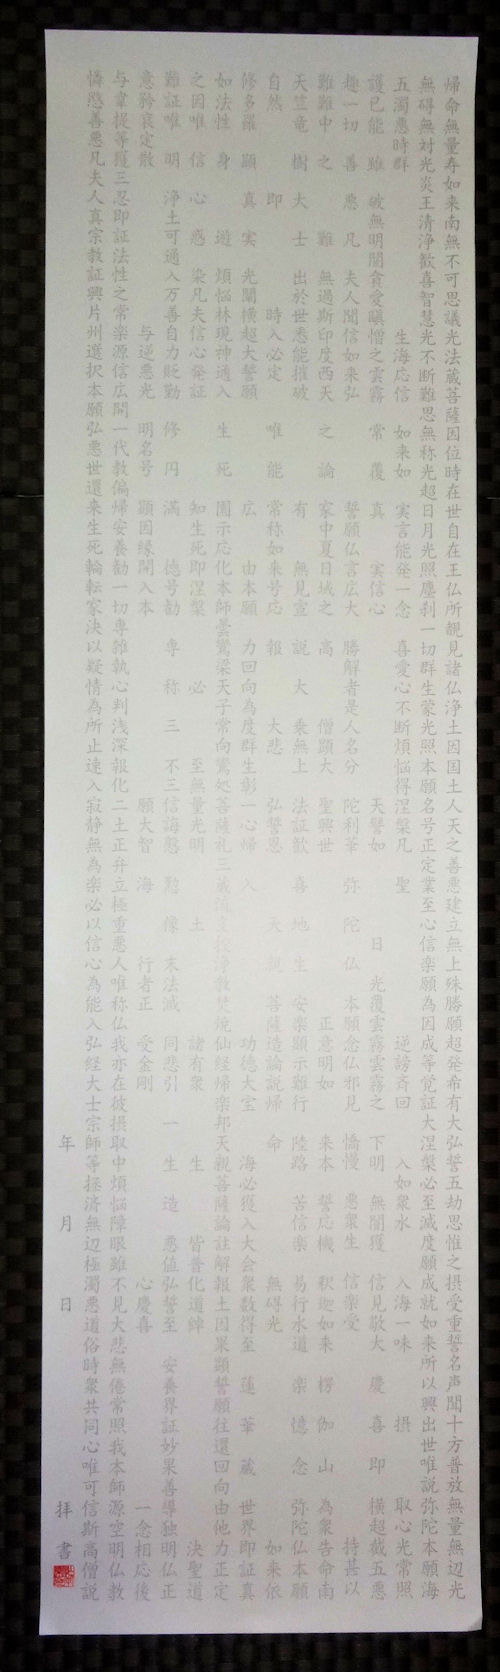 帰命無量寿如来南無不可思議光法蔵菩薩因位時在世自在王仏所覩見諸仏浄土因国土人天之善悪建立無上殊勝願超発希有大弘誓五劫思惟之摂受重誓名声聞十方普放無量無辺光
無碍無対光炎王清浄歓喜智慧光不断難思無称光超日月光照塵刹一切群生蒙光照本願名号正定業至心信楽願為因成等覚証大涅槃必至滅度願成就如来所以興出世唯説弥陀本願海
五濁悪時群 生海応信 如来如 実言能発一念 喜愛心不断煩悩得涅槃凡 聖 逆謗斉回 入如衆水 入海一味 摂 取心光常照
護已能 雖 破無明闇貪愛瞋憎之雲霧 常 覆 真 実信心 天譬如 日 光覆雲霧雲霧之 下明 無闇獲 信見敬大 慶 喜 即 横超截五悪
趣一切 善 悪 凡 夫人聞信如来弘 誓願仏言広大 勝解者是人名分 陀利華 弥 陀 仏 本願念仏邪見 憍慢 悪衆生 信楽受 持甚以
難難中 之 難 無過斯印度西天 之 論 家中夏日域之 高 僧顕大 聖興世 正意明如 来本 誓応機 釈迦如来 楞 伽 山 為衆告命南
天竺竜 樹 大 士 出於世悉能摧破 有 無見宣 説 大 乗無上 法証歓 喜 地 生 安楽顕示難行 陸路 苦信楽 易行水道 楽 憶 念 弥陀仏本願
自然 即 時入必定 唯 能 常称如来号応 報 大悲 弘誓恩 天 親 菩薩造論説帰 命 無碍光 如来依
修多羅 顕 真 実 光闡横超大誓願 広 由本願 力回向為度群生彰一心帰 入 功徳大宝 海必獲入大会衆数得至 蓮 華 蔵 世界即証真
如法性 身 遊 煩悩林現神通入 生 死 園示応化本師曇鸞梁天子常向鸞処菩薩礼三蔵流支授浄教焚焼仙経帰楽邦天親菩薩論註解報土因果顕誓願往還回向由他力正定
之因唯 信 心 惑 染凡夫信心発証 知生死即涅槃 必 至無量光明 土 諸有衆 生 皆普化道綽 決聖道
難証唯 明 浄土可通入万善自力貶勤 修 円 満 徳号勧 専 称 三 不三信誨慇 懃 像 末法滅 同悲引 一 生 造 悪値弘誓至 安養界証妙果善導独明仏正
意矜哀定散 与逆悪光 明名号 顕因縁開入本 願大智 海 行者正 受金剛 心慶喜 一念相応後
与韋提等獲三忍即証法性之常楽源信広開一代教偏帰安養勧一切専雑執心判浅深報化二土正弁立極重悪人唯称仏我亦在彼摂取中煩悩障眼雖不見大悲無倦常照我本師源空明仏教
憐愍善悪凡夫人真宗教証興片州選択本願弘悪世還来生死輪転家決以疑情為所止速入寂静無為楽必以信心為能入弘経大士宗師等拯済無辺極濁悪道俗時衆共同心唯可信斯高僧説
年 月 日 拝 書